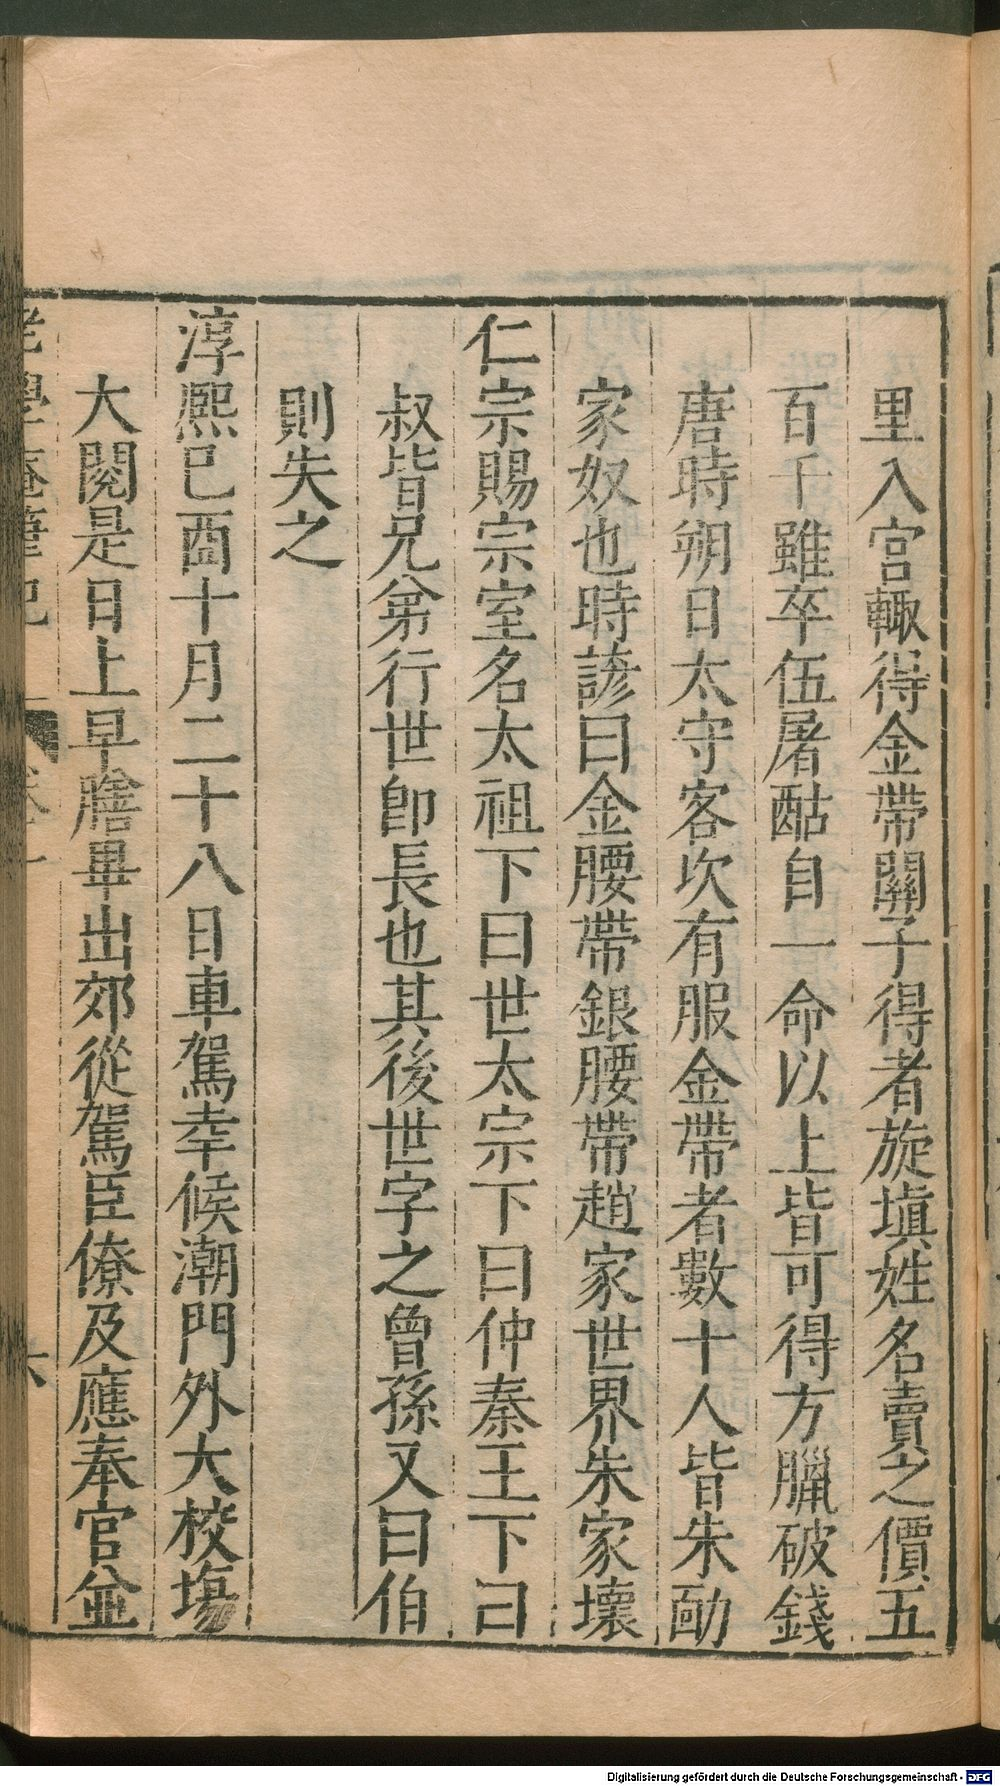 里入宮輙得金帶關子得者旋填姓名賣之價五
百千雖卒伍屠酤自一命以上皆可得方臘破錢
唐時朔日太守客次有服金帶者數十人皆朱勔
家奴也時諺曰金腰帶銀腰帶趙家世界朱家壞
仁宗賜宗室名太祖下曰世太宗下曰仲秦王下曰
叔皆兄弟行世卽長也其後世字之曾孫又曰伯
則失之
淳熙己酉十月二十八日車駕幸候潮門外大校塲
大閱是日上早膳畢出郊從駕臣僚及應奉官並
老學庵筆記 卷一 六
Digitalisierung gefördert durch die Deutsche Forschungsgemeinschaft - DFG